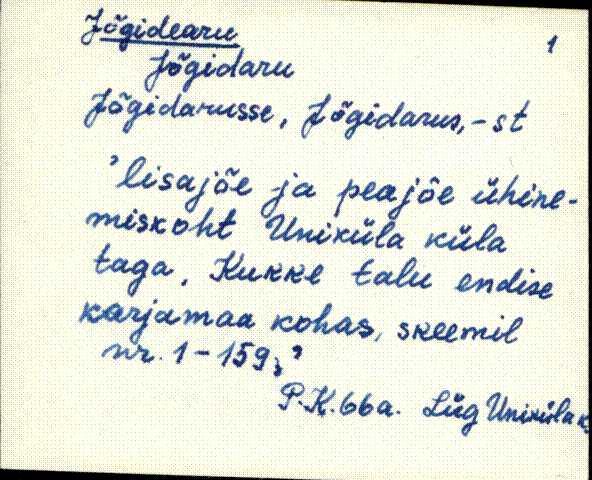 Jõgidearu 1
Jõgidaru
Jõgidarusse, Jõgidarus, -st
'lisajõe ja peajõe ühine-
miskoht Uniküla küla
taga, Kukke talu endise
karjamaa kohas, skeemil
nr. 1-159;'
P.K. 66a. Lüg Uniküla k.